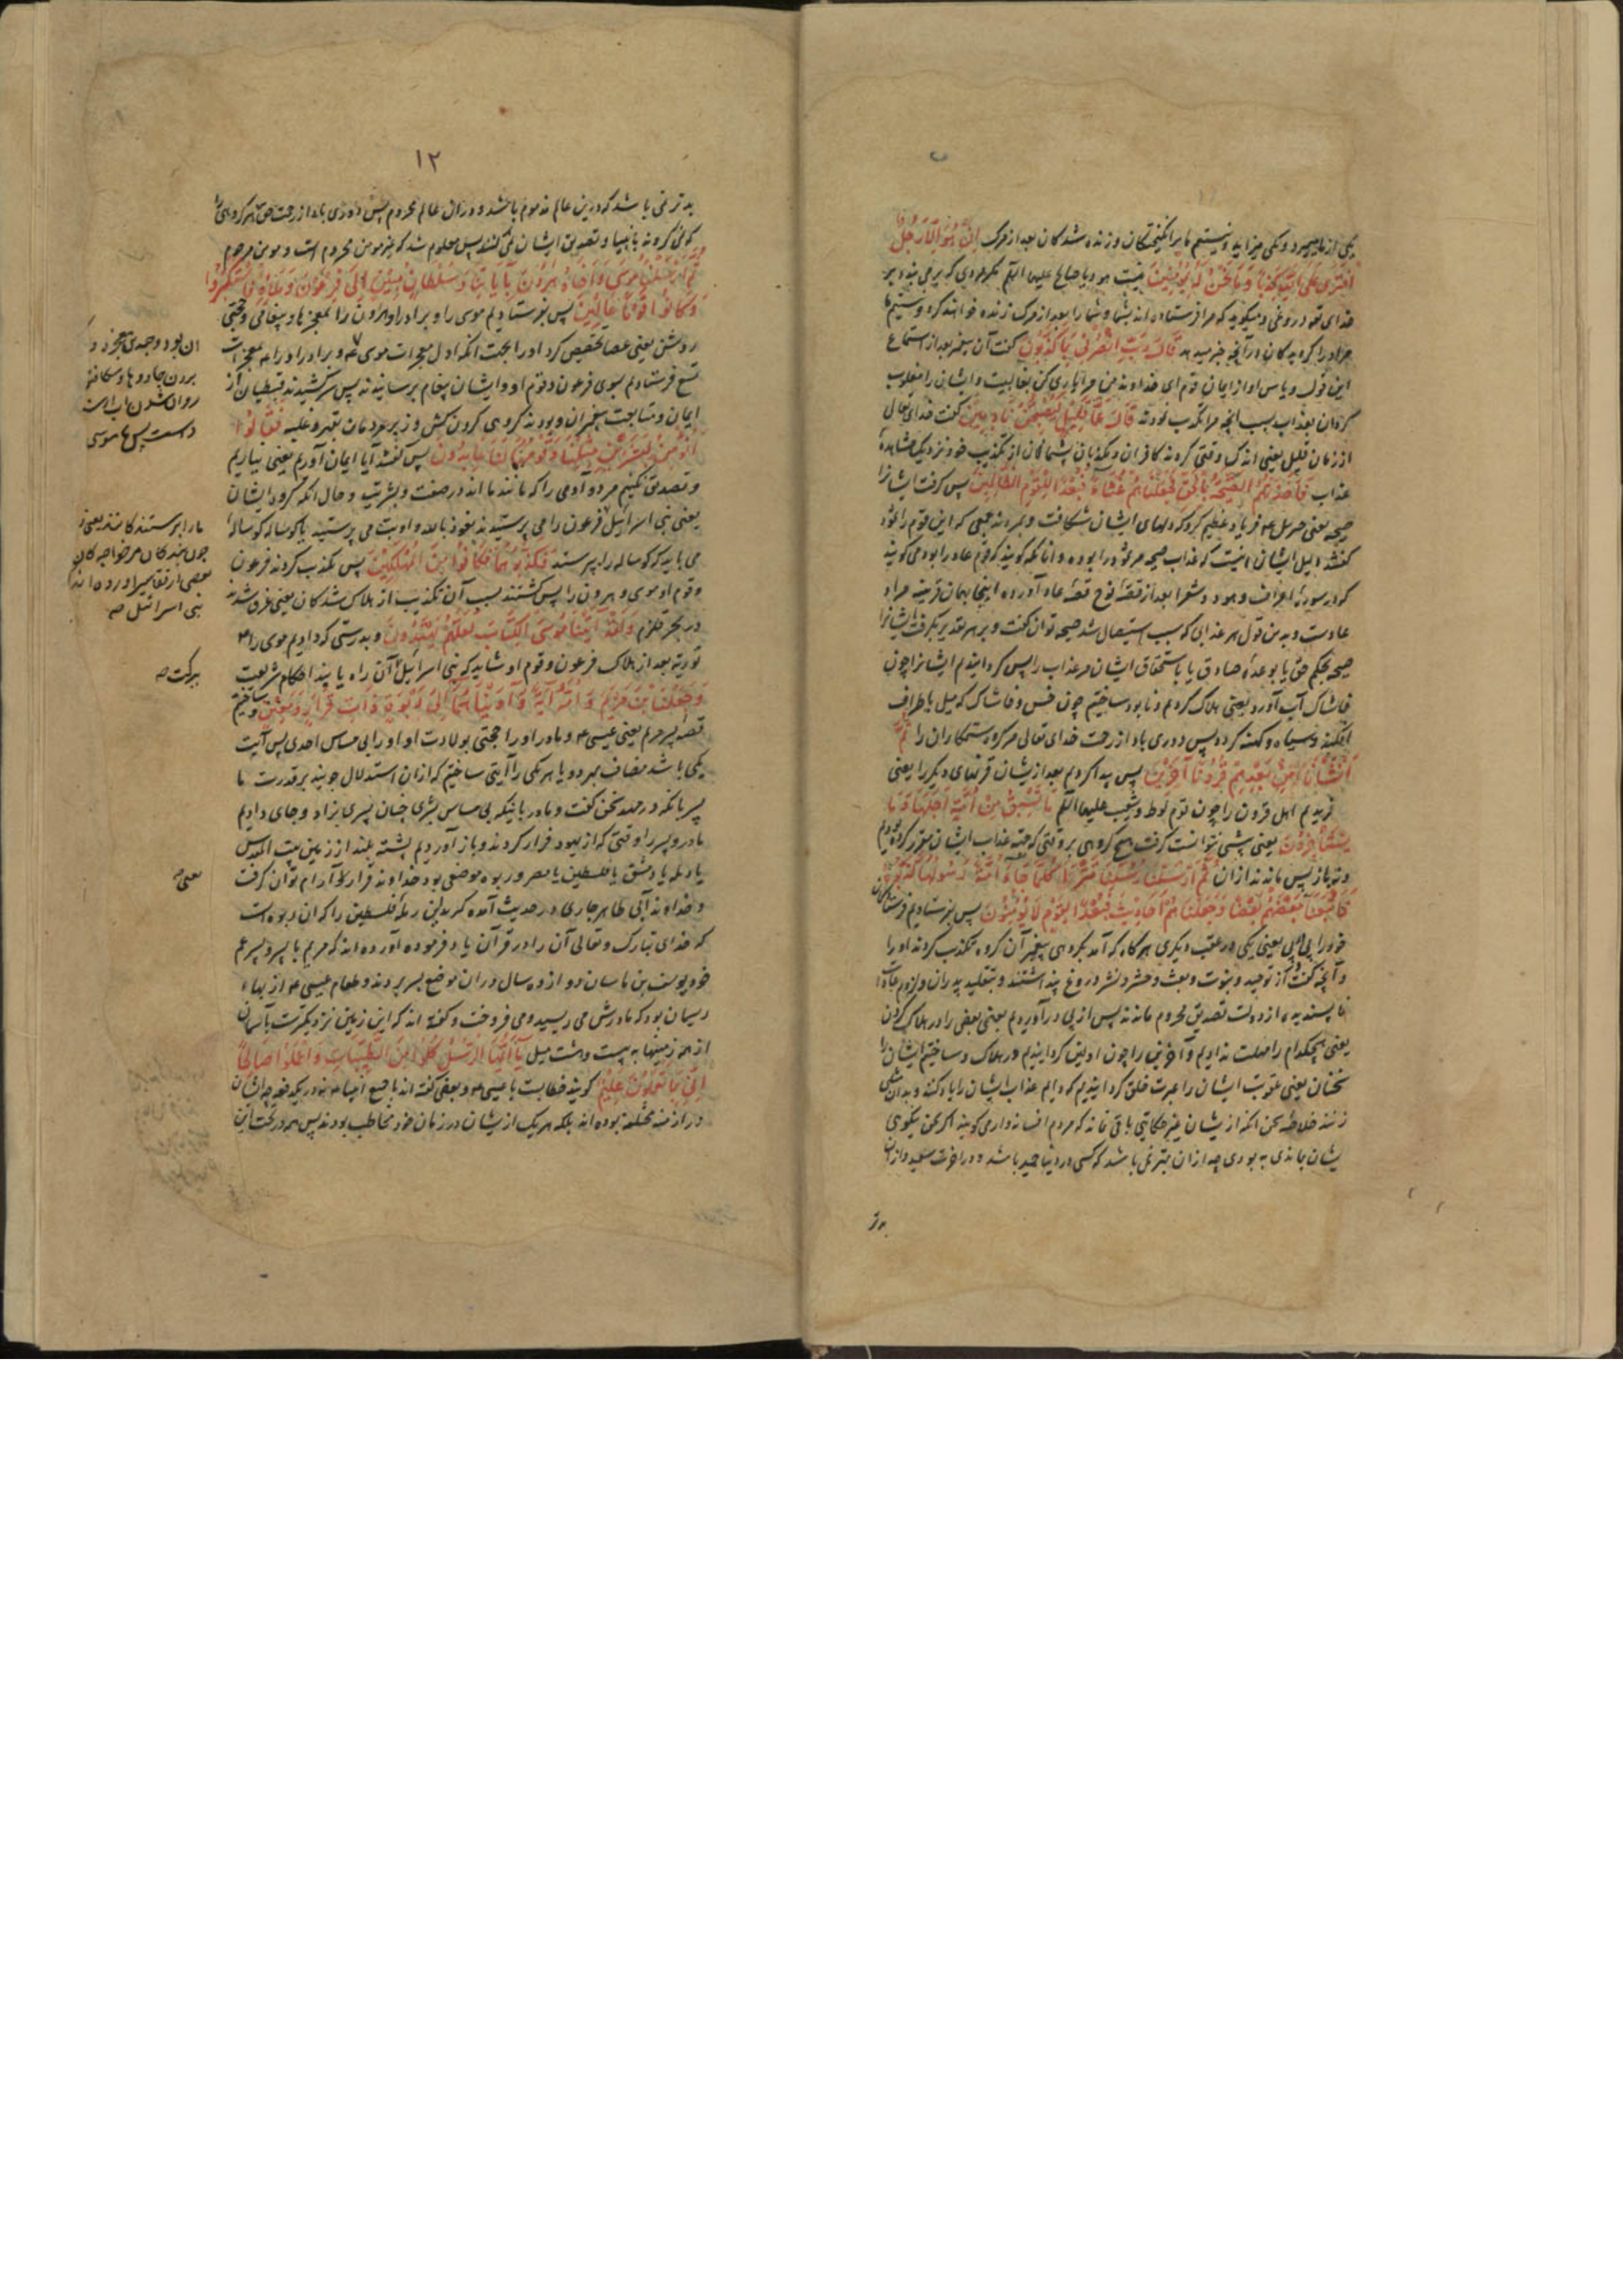 یکی از ما میمیرد و یکی میزاید و نیستیم ما برانگیختگان و زنده شدکان بعد از مرک إِنْ هُوَ إِلَّا رَجُلٌ
افْتَرَى عَلَى اللَّهِ كَذِبًا وَمَا نَحْنُ لَهُ بِمُؤْمِنِينَ نیست هود یا صالح علیهما السلم مکر مردی که بر می بندد بر
خدای تعه دروغی و میکوید که مرا فرستاده اند بشما و شما را بعد از مرک زنده خواهند کرد و نیستیم ما
مر او را کرویدکان در آنچه خبر میدهد قَالَ رَبِّ انْصُرْنِي بِمَا كَذَّبُونِ کفت آن پیغمبر بعد از استماع
این قول و یاس او از ایمان قوم ای خداوند من مرا یاری کن بغالبیت و ایشان را مغلوب
کردان بعذاب بسبب آنچه مرا تکذیب نمودند قَالَ عَمَّا قَلِيلٍ لَيُصْبِحُنَّ نَادِمِينَ کفت خدای تعالی
از زمان قلیل یعنی اندک وقتی کردند کافران و مکذبان پشیمانان از تکذیب خود نزدیک مشاهدهٔ
عذاب فَأَخَذَتْهُمُ الصَّيْحَةُ بِالْحَقِّ فَجَعَلْنَاهُمْ غُثَاءً فَبُعْدًا لِلْقَوْمِ الظَّالِمِينَ پس کرفت ایشانرا
صیحه یعنی جبرئیل ع فریاد عظیم کرد که دلهای ایشان شکافت و بمردند جمعی که این قوم را ثمود
کفتند دلیل ایشان اینست که عذاب صیحه مر ثمود را بوده و آنانکه کویند که قوم عاد را بود می کویند
که در سورهٔ اعراف و هود و شعرا بعد از قصهٔ نوح قصهٔ عاد آورده اینجا بهمان قرینه مراد
عادست و بدین قول هر عذابی که سبب استیصال شد صیحه توان کفت و بر هر تقدیر بکرفت ایشانرا
صیحه بحکم حق یا بوعدهٔ صادق یا باستحقاق ایشان مر عذاب را پس کردانیدیم ایشانرا چون
خاشاک آب آورد یعنی هلاک کردیم و نابود ساختیم چون خس و خاشاک که سیل باطراف
افکند و سیاه و کهنه کردد پس دوری باد از رحت خدای تعالی مر کروه ستمکاران را ثُمَّ
أَنْشَأْنَا مِنْ بَعْدِهِمْ قُرُونًا آخَرِينَ پس پیدا کردیم بعد ازیشان قرنهای دیکر را یعنی
آفریدیم اهل قرون را چون قوم لوط و شعیب علیهما السلم مَا تَسْبِقُ مِنْ أُمَّةٍ أَجَلَهَا وَمَا
يَسْتَأْخِرُونَ یعنی پیشی نتوانست کرفت هیچ کروهی بر وقتی که جهة عذاب ایشان مقرر کرده بودیم
و نه باز پس ماندند ازان ثُمَّ أَرْسَلْنَا رُسُلَنَا تَتْرَى كُلَّمَا جَاءَ أُمَّةً رَسُولُهَا كَذَّبُوهُ
فَأَتْبَعْنَا بَعْضَهُمْ بَعْضًا وَجَعَلْنَاهُمْ أَحَادِيثَ فَبُعْدًا لِقَوْمٍ لَا يُؤْمِنُونَ پس بفرستادیم فرستادکان
خود را پی در پی یعنی یکی در عقب دیکری هرکاه که آمد بکروهی پیغمبر آن کروه تکذیب کردند او را
و آنچه کفت از توحید و نبوت و بعث و حشر و نشر دروغ پنداشتند و بتقلید پدران و لزوم عادات
ناپسندیده از دولت تصدیق محروم ماندند پس از پی در آوردیم بعضی را در هلاک کردن
یعنی هیچکدام را مهلت ندادیم و آخرین را چون اولین کردانیدیم در هلاک و ساختیم ایشان را
سخنان یعنی عقوبت ایشان را عبرت خلق کردانیدیم که دایم عذاب ایشان را یاد کنند و بدان مثل
زنند خلاصهٔ سخن آنکه ازیشان غیر حکایتی باقی نماند که مردم افسانه وار می کویند اکر سخن نیکوی
یشان بماندی به بودی چه ازان بهتر نمی باشد که کسی در دنیا حمید باشد و در آخرت سعید و ازان
بدتر
١٢
بدتر نمی باشد که درین عالم مذموم باشد و دران عالم محروم پس دوری باد از رحمت حق مر کروهی را
که نمی کروند بانبیا و تصدیق ایشان نمی کنند پس معلوم شد که غیر مومن محروم است و مومن مرحوم
ثُمَّ أَرْسَلْنَا مُوسَى وَأَخَاهُ هَارُونَ بِآيَاتِنَا وَسُلْطَانٍ مُبِينٍ إِلَى فِرْعَوْنَ وَمَلَئِهِ فَاسْتَكْبَرُوا
وَكَانُوا قَوْمًا عَالِينَ پس بفرستادیم موسی را و برادر او هرون را بمعجزها و پیغامی و حجتی
روشن یعنی عصا تخصیص کرد او را بجهت آنکه اول معجزات موسی ع و برادر او را به معجزات
تسع فرستادیم بسوی فرعون و قوم او و ایشان پیغام برسانیدند پس سرکشیدند قبطیان از
ایمان و متابعت پیغمبران و بودند کروهی کردن کش و زبر مردمان بقهر و غلبه فَقَالُوا
أَنُؤْمِنُ لِبَشَرَيْنِ مِثْلِنَا وَقَوْمُهُمَا لَنَا عَابِدُونَ پس کفتند آیا ایمان آوریم یعنی نیاریم
و تصدیق نکنیم مر دو آدمی را که مانند ما اند در صفت و بشریت و حال آنکه کروه ایشان
یعنی بنی اسرائیل فرعون را می پرستیدند نعوذ بالله و او بت می پرستید یا کوساله کوساله
می باید که کوساله را پرستد فَكَذَّبُوهُمَا فَكَانُوا مِنَ الْمُهْلَكِينَ پس تکذیب کردند فرعون
و قوم او موسی و هرون را پس کشتند بسبب آن تکذیب از هلاک شدکان یعنی غرق شدند
در بحر قلزم وَلَقَدْ آتَيْنَا مُوسَى الْكِتَابَ لَعَلَّهُمْ يَهْتَدُونَ و بدرستی که دادیم موسی را ع
توریة بعد از هلاک فرعون و قوم او شاید که بنی اسرائیل آن راه یابند احکام شریعت
وَجَعَلْنَا ابْنَ مَرْيَمَ وَأُمَّهُ آيَةً وَآوَيْنَاهُمَا إِلَى رَبْوَةٍ ذَاتِ قَرَارٍ وَمَعِينٍ و ساختیم
قصهٔ پسر مریم یعنی عیسی ع و مادر او را حجتی بولادت او او را بی مساس احدی پس آیت
یکی باشد مضاف بهر دو یا هر یکی را آیتی ساختیم که ازان استدلال جویند بر قدرت ما
پسر بانکه در مهد سخن کفت و مادر بانیکه بی مساس بشری چنان پسری بزاد و جای دادیم
مادر و پسر را وقتی که از یهود فرار کردند و باز آوردیم پشتهٔ بلند از زمین بیت المقدس
یا رمله یا دمشق یا فلسطین یا مصر و ربوه موضعی بود خداوند قرار که آرام توان کرفت
و خداوند آبی ظاهر جاری در حدیث آمده که بدین رملهٔ فلسطین را که ان ربوه است
که خدای تبارک و تعالی آن را در قرآن یاد فرموده آورده اند که مریم با پسر و پسر عم
خود یوسف بن ماسان دوازده سال دران موضع بسر بردند و طعام عیسی ع از بهاء
ریسمان بود که مادرش می ریسید و می فروخت و کفته اند که این زمین نزدیکترست بآسمان
از همه زمینها به بیست و هشت میل يَا أَيُّهَا الرُّسُلُ كُلُوا مِنَ الطَّيِّبَاتِ وَاعْمَلُوا صَالِحًا
إِنِّي بِمَا تَعْمَلُونَ عَلِيمٌ کویند خطابست با عیسی ع و بعضی کفته اند با جمیع انبیا نه در یکدفعه چه ایشان
در ازمنهٔ مختلفه بوده اند بلکه هر یک ازیشان در زمان خود مخاطب بودند پس همه در تحت این
ان بود و جمدی معجزه
بردن جادوها و شکافتن
روان شدن اب است
دست پس ها موسی
مارا پرستندکانند یعنی
چون بندکان مر خواجه کان
بعضی از تفاسیر اورده اند
بنی اسرائیل صه
ببرکت صه
یعنی